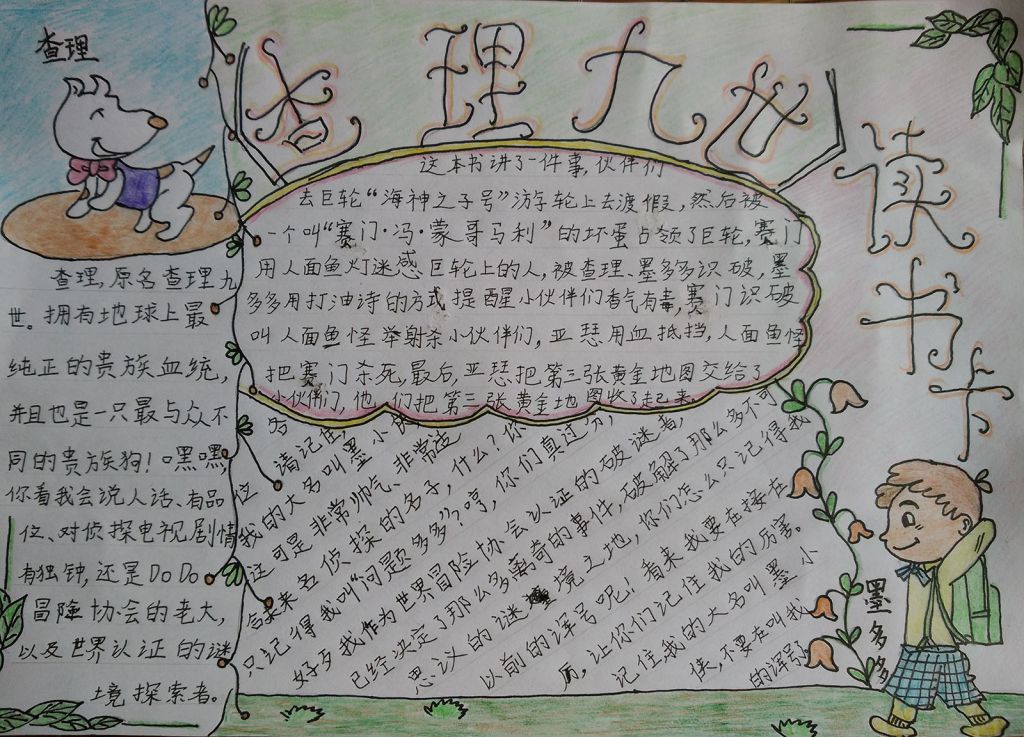 查理九世
读书卡
查理
查理,原名查理九
世。拥有地球上最
纯正的贵族血统,
并且也是一只最与众不
同的贵族狗!嘿嘿,
你看我会说人话、有品
位、对侦探电视剧情
有独钟,还是DoDo
冒险协会的老大,
以及世界认证的谜
境探索者。
这本书讲了一件事,伙伴们
去巨轮“海神之子号”游轮上去渡假,然后被
一个叫“赛门·冯·蒙哥马利”的坏蛋占领了巨轮,赛门
用人面鱼灯迷惑巨轮上的人,被查理、墨多多识破,墨
多多用打油诗的方式提醒小伙伴们香气有毒,赛门识破
叫人面鱼怪举射杀小伙伴们,亚瑟用血抵挡,人面鱼怪
把赛门杀死,最后,亚瑟把第三张黄金地图交给了
小伙伴们,他们把第三张黄金地图收了起来。
各位
请记住,
我的大名叫墨小侠
这可是非常帅气、非常适
合未来名侦探的名子,什么?你
只记得我叫“问题多多”?哼,你们真过分,
好歹我作为世界冒险协会认证的破谜者,
已经决定了那么多离奇的事件,破解了那么多不可
思议的谜境之地,你们怎么只记得我
以前的诨号呢!看来我要在接在
厉,让你们记住我的厉害。
记住,我的大名叫墨小
侠,不要在叫我
的诨号
墨多多